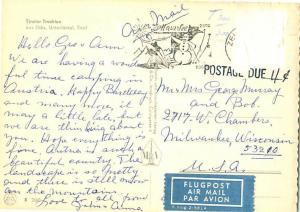 Tiroler Trachten
aus Pills, Unterinntal, Tirol
Hello Geo & Ann
We are having a wonder-
ful time camping in
Austria. Happy Birthday
and many more it
may a little late, but
we are thinking about
you. Hope every thing is
fine. Austria is such a
beautiful country. The
landscape is so pretty
and there is still snow
on the mountains.
Love to all from
Alma
Air Mail
POSTAGE DUE 4¢
Mr & Mrs George Murray
and Bob.
2 W. Chambers,
Milwaukee, Wisconsin
U.S.A.
FLUGPOST
AIR MAIL
PAR AVION